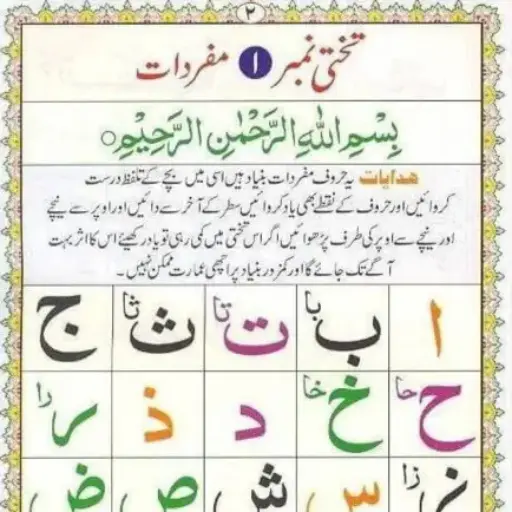 ۲
تختی نمبر ۱ مفردات
بِسْمِ اللهِ الرَّحْمٰنِ الرَّحِیْمِ○
ھدایات یہ حروف مفردات بنیاد ہیں اسی میں بچے کے تلفظ درست
کروائیں اور حروف کے نقطے بھی یاد کروائیں سطر کے آخر سے دائیں اور اوپر سے نیچے
اور نیچے سے اوپر کی طرف پڑھوائیں اگر اس تختی میں کمی رہی تو یاد رکھیئے اس کا اثر بہت
آگے تک جائے گا اور کمزور بنیاد پر اچھی عمارت ممکن نہیں۔
ا ب با ت تا ث ثا ج
ح حا خ خا د ذ ر را
ز زا س ش ص ض